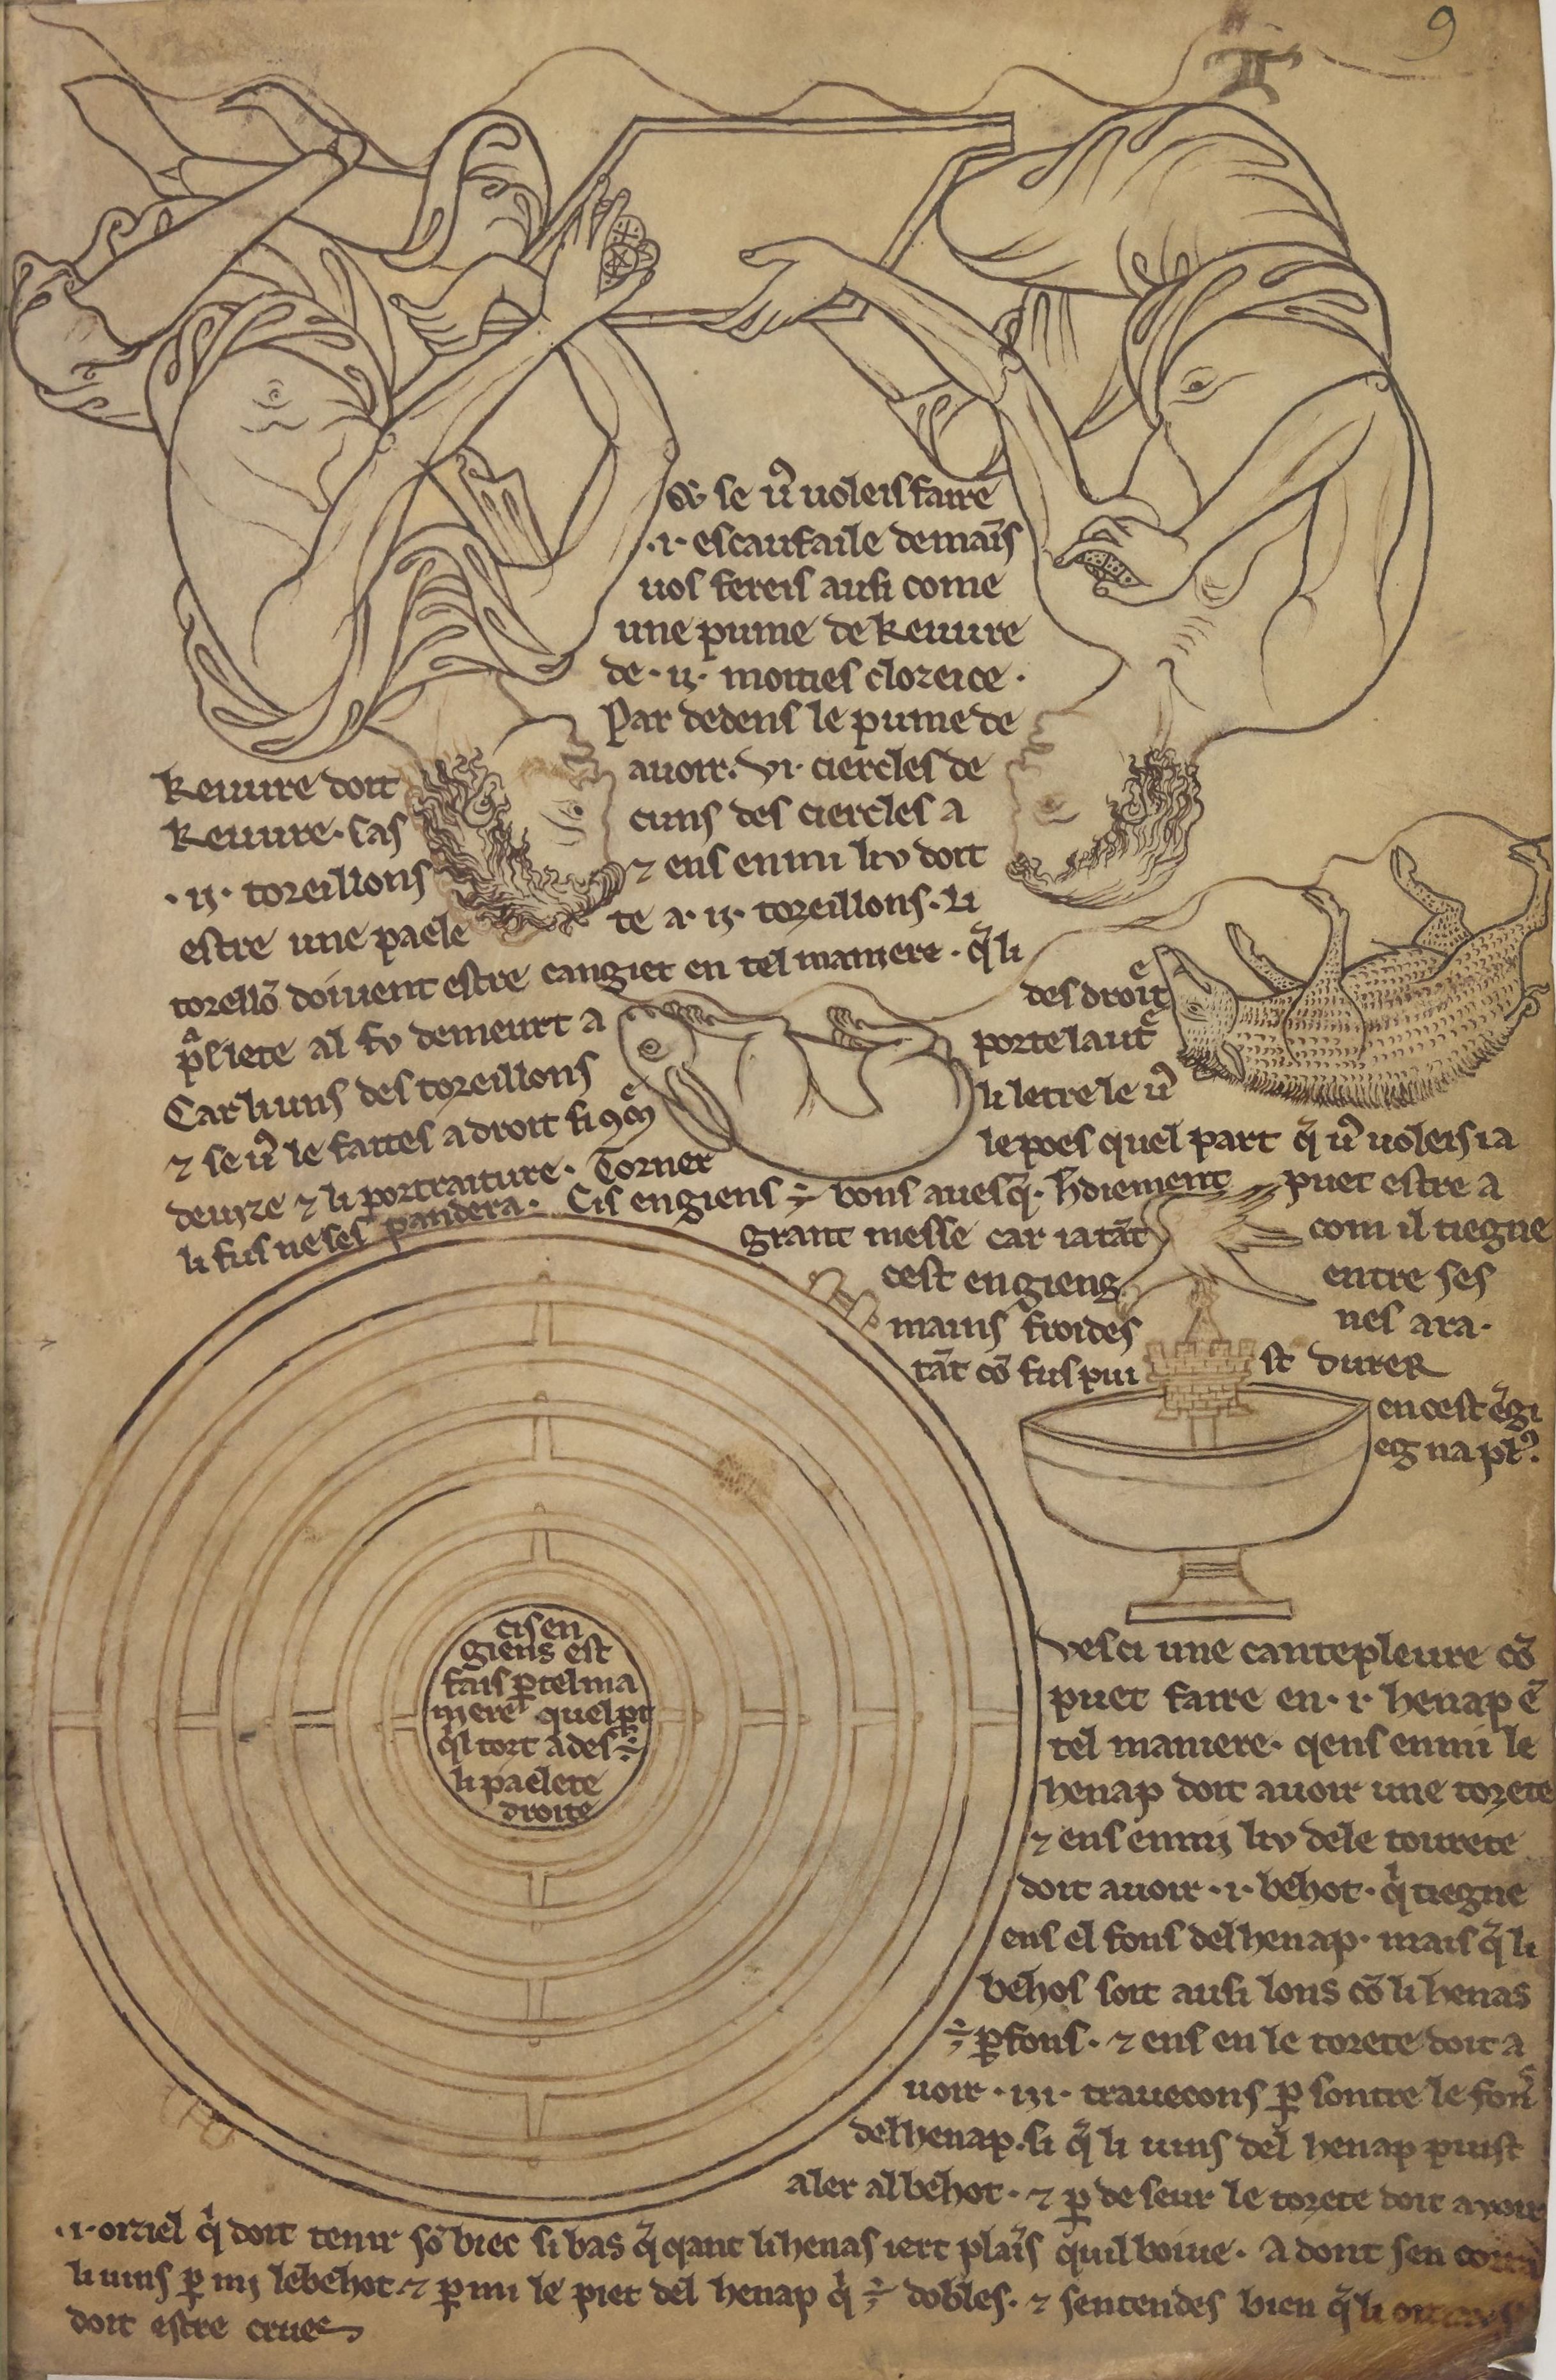 9
II
& se uͦ uoleis faire
.i. escaufaile de mains
uos fereis ausi come
une pume de keuure
de .ii. moities clozeice.
Par dedens le pume de
keuure doit auoir .vi. ciercles de
keuure. cas cuns des ciercles a
.ii. toreillons ⁊ ens enmi liv doit
estre une paele te a .ii. toreillons. li
torellõ doiuent estre cangiet en tel maniere. q̃ li
paliete al fu demeurt a des droite
Car li uns des toreillons porte lautͤ
⁊ se uͦ le faites a droit si 9m̃ li letre le uͦ
deuize ⁊ li portraiture. Torner le poes quel part q̃ uͦ uoleis ia
li fus ne ses pandera. Cis engiens ÷ bons a uesq̃. hdiement puet estre a
grant messe car ia tãt com il tiegne
cest engieng entre ses
mains froides nes ara.
tãt cõ fus puist durer
en cest ẽgi
eg na plꝰ.
cis en
giens est
fais ꝑ tel ma
niere quel ꝑt
q̃l tort ades ÷
li paelete
droite
Vesci une cantepleure cõ
puet faire en .i. henap ẽ
tel maniere. qens enmi le
henap doit auoir une torete
⁊ ens enmi liv dele tourete
doit auoir .i. behot. q̃ tiegne
ens el fons del henap. mais q̃ li
behos soit ausi lons cõ li henas
÷ ꝑfons. ⁊ ens en le torete doit a
uoir .iii. trauecons ꝑ sontre le fonͨ
del henap. si q̃ li uins del henap puist
aler al behot. ⁊ ꝑ de seur le torete doit avoir
.i. oiziel q̃ doit tenir sõ biec si bas q̃ qant li henas iert plaĩs quil boiue. A dont sen corra
li uins ꝑ mi le behot. ⁊ ꝑ mi le piet del henap q̃ ÷ dobles. ⁊ sentendes bien q̃ li
doit estre crues